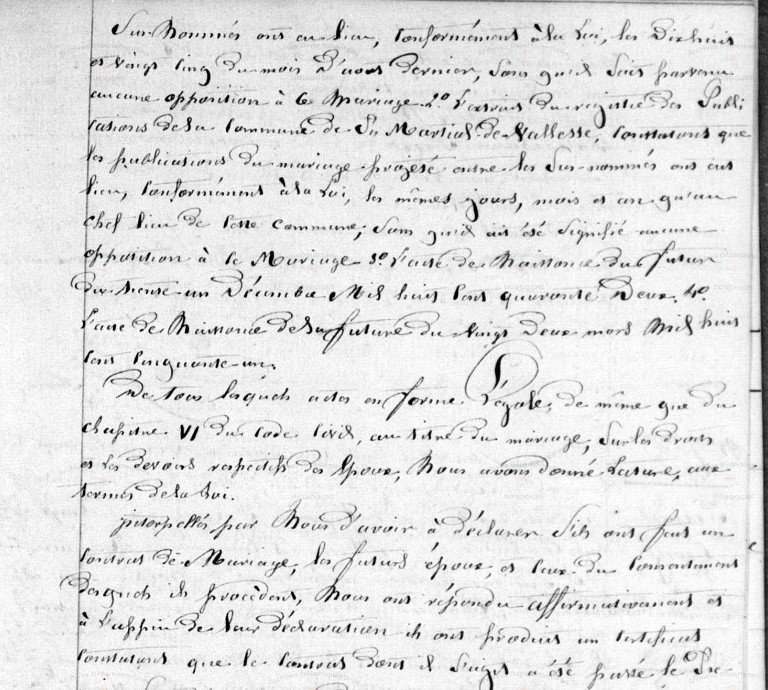 Sur-Nommés ont eu lieu, Conformément à la Loi, les Dix huit
et vingt cinq du mois d'aout dernier, sans qu'il soit parvenu
aucune opposition à ce Mariage 2º L'extrait du registre des Publi
cations de la Commune de St Martial-de-Vallesse, Constatant que
les publications du mariage projeté entre les Sur-nommés ont eut
lieu, Conformément à la Loi, les mêmes jours, mois et an qu'au
chef lieu de Cette Commune, Sans qu'il ait été Signifié aucune
opposition à ce Mariage 3º L'acte de Naissance du futur
du trente un Décembre Mil huit Cent quarante Deux. 4º
L'acte de Naissance de la future du vingt Deux mars Mil huit
Cent Cinquante-un.
De Tous lesquels actes en forme Légale, de même que du
chapitre VI du Code Civil, au titre du mariage, Sur les droits
et Les devoirs respectifs des Époux, Nous avons donné Lecture, aux
termes de la Loi.
interpellés par Nous d'avoir à déclarer S'ils ont fait un
Contrat de Mariage, les futurs époux, et Ceux du Consentement
desquels ils procèdent, Nous ont répondu affirmativement et
à L'appui de leur déclaration ils ont produit un Certificat
Constatant que le Contrat dont il S'agit a été passé le Dix-